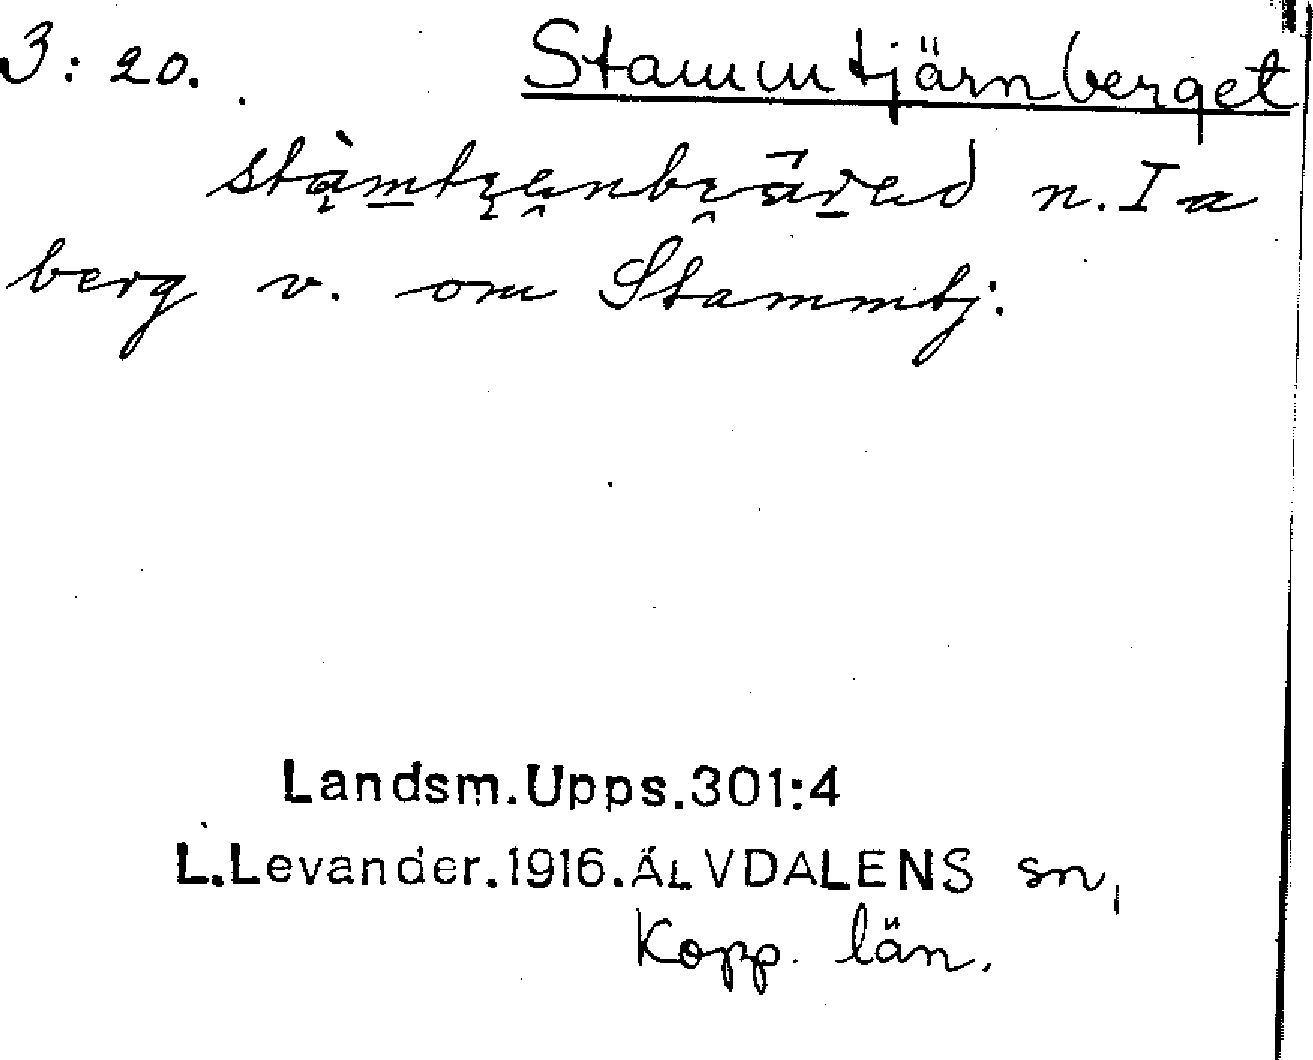 3:20. Stammtjärnberget
n. I a
berg v. om Stammtj:
Landsm.Upps.301:4
L.Levander.1916.ÄLVDALENS sn,
Kopp. län.